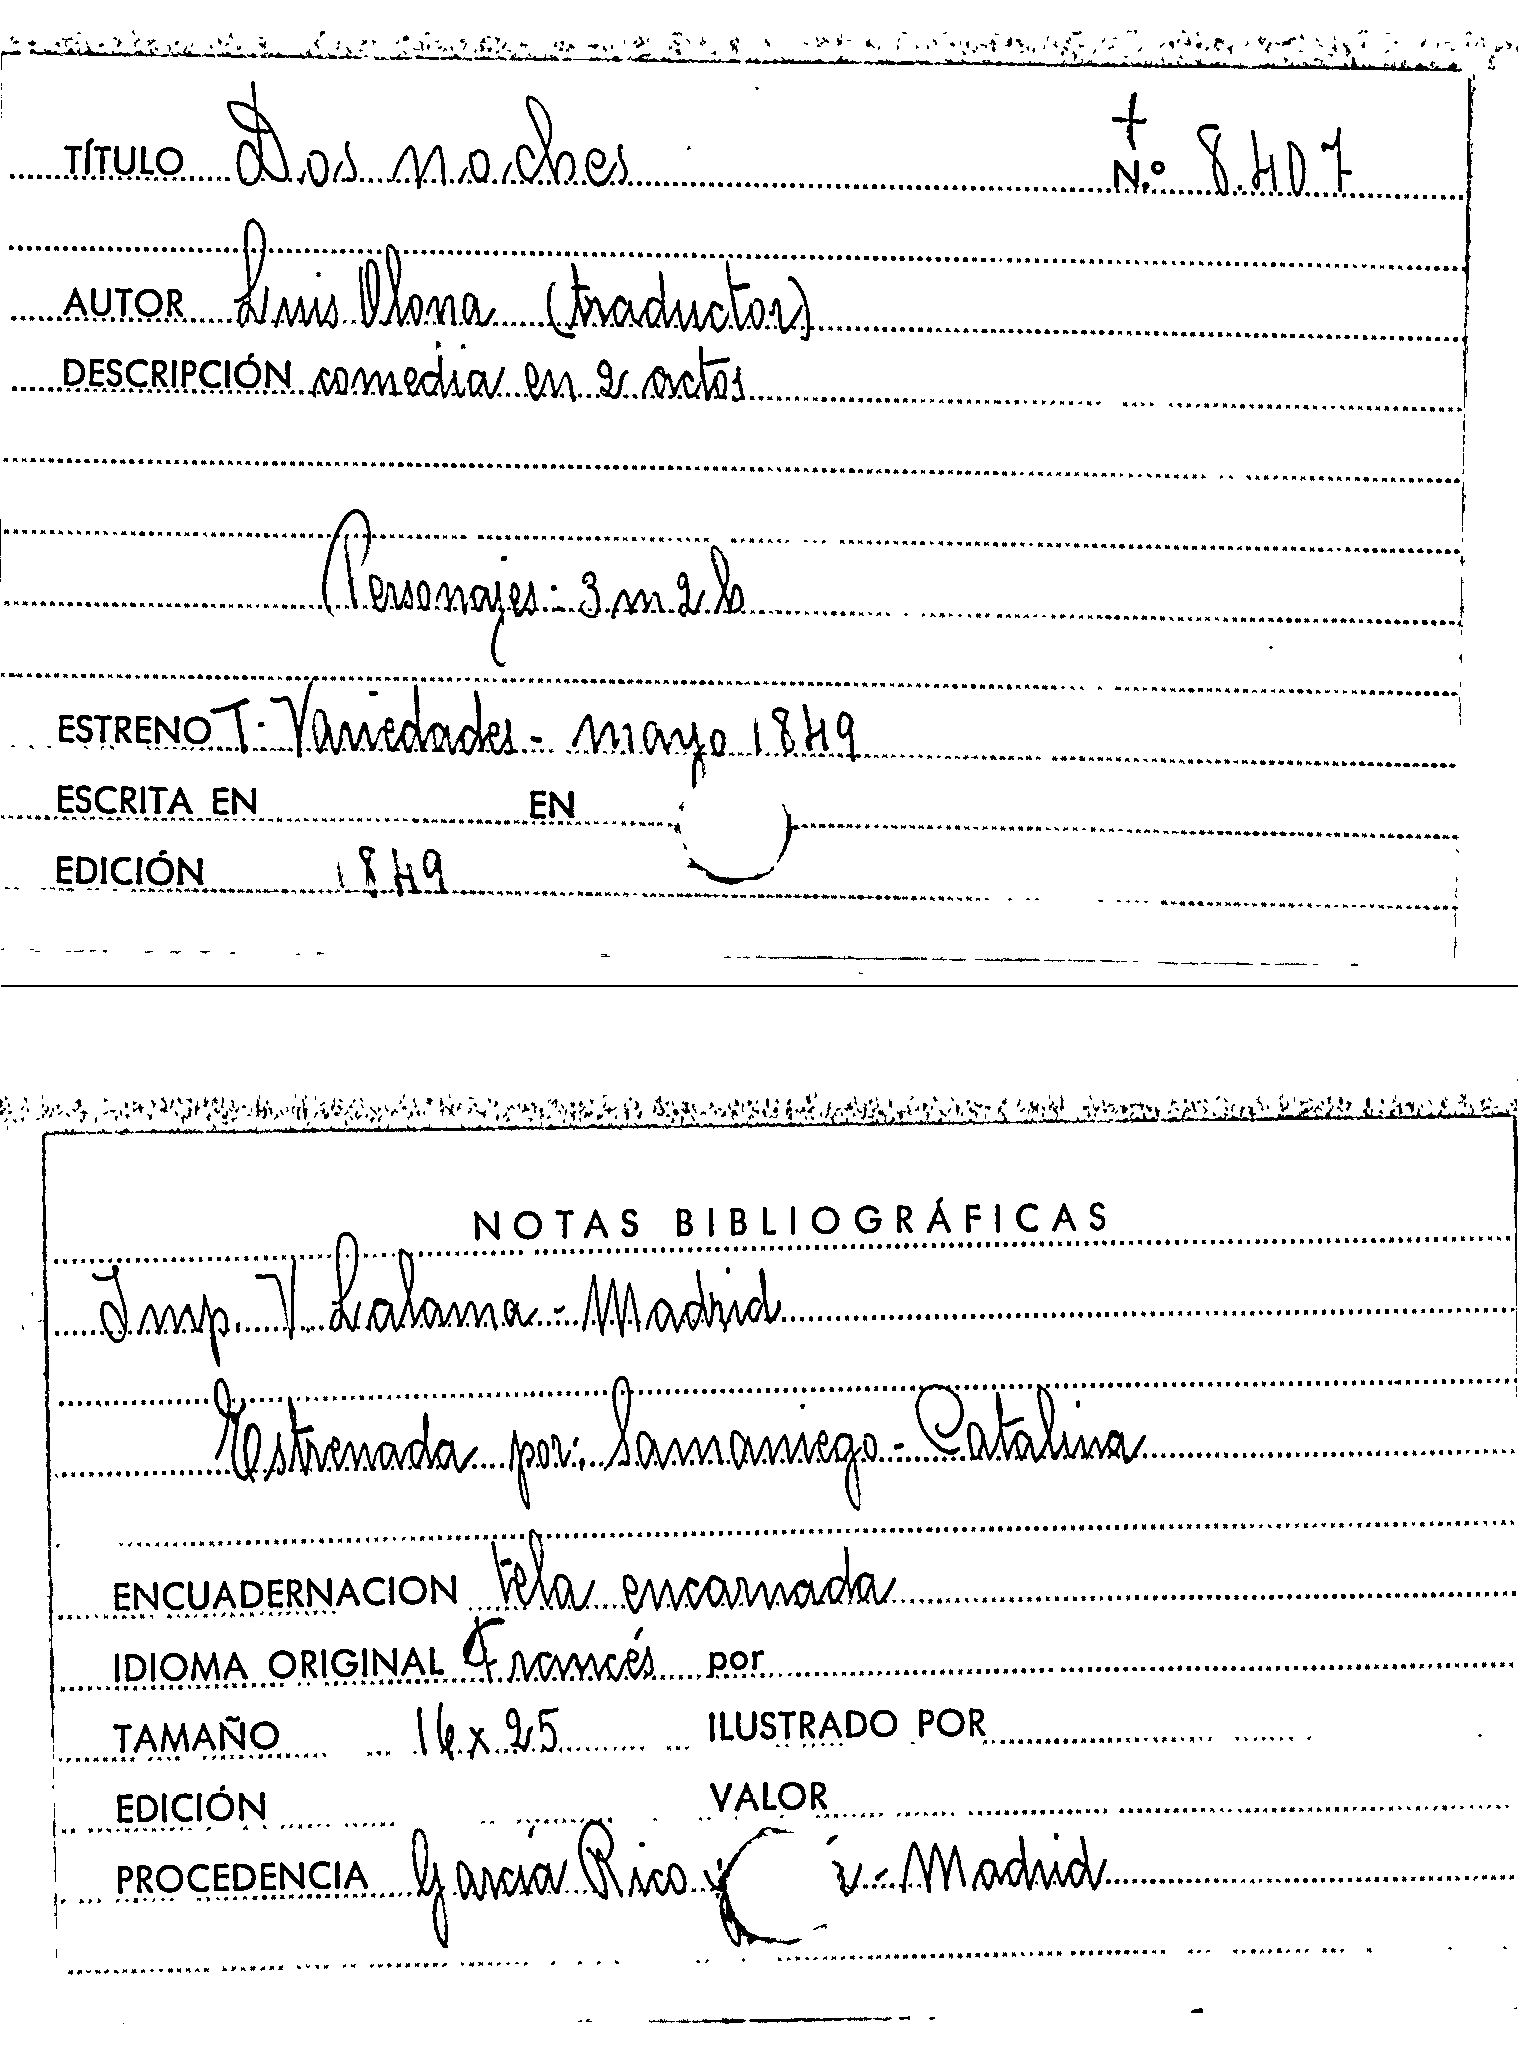 TÍTULO Dos noches + N.º 8.407
AUTOR Luis Olona (traductor)
DESCRIPCIÓN comedia en 2 actos
Personajes - 3 m 2 h
ESTRENO T. Variedades - mayo 1849
ESCRITA EN EN
EDICIÓN 1849
NOTAS BIBLIOGRÁFICAS
Imp. V Lalama - Madrid
Estrenada por: Samaniego - Catalina
ENCUADERNACION tela encarnada
IDIOMA ORIGINAL Francés por
TAMAÑO 16 x 25 ILUSTRADO POR
EDICIÓN VALOR
PROCEDENCIA García Rico y - Madrid